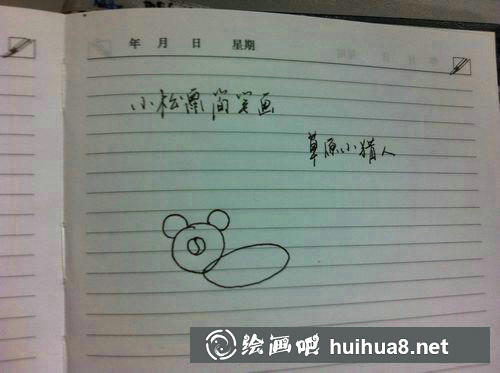 年 月 日 星期
小松鼠简笔画
草原小猎人
绘画吧 huihua8.net